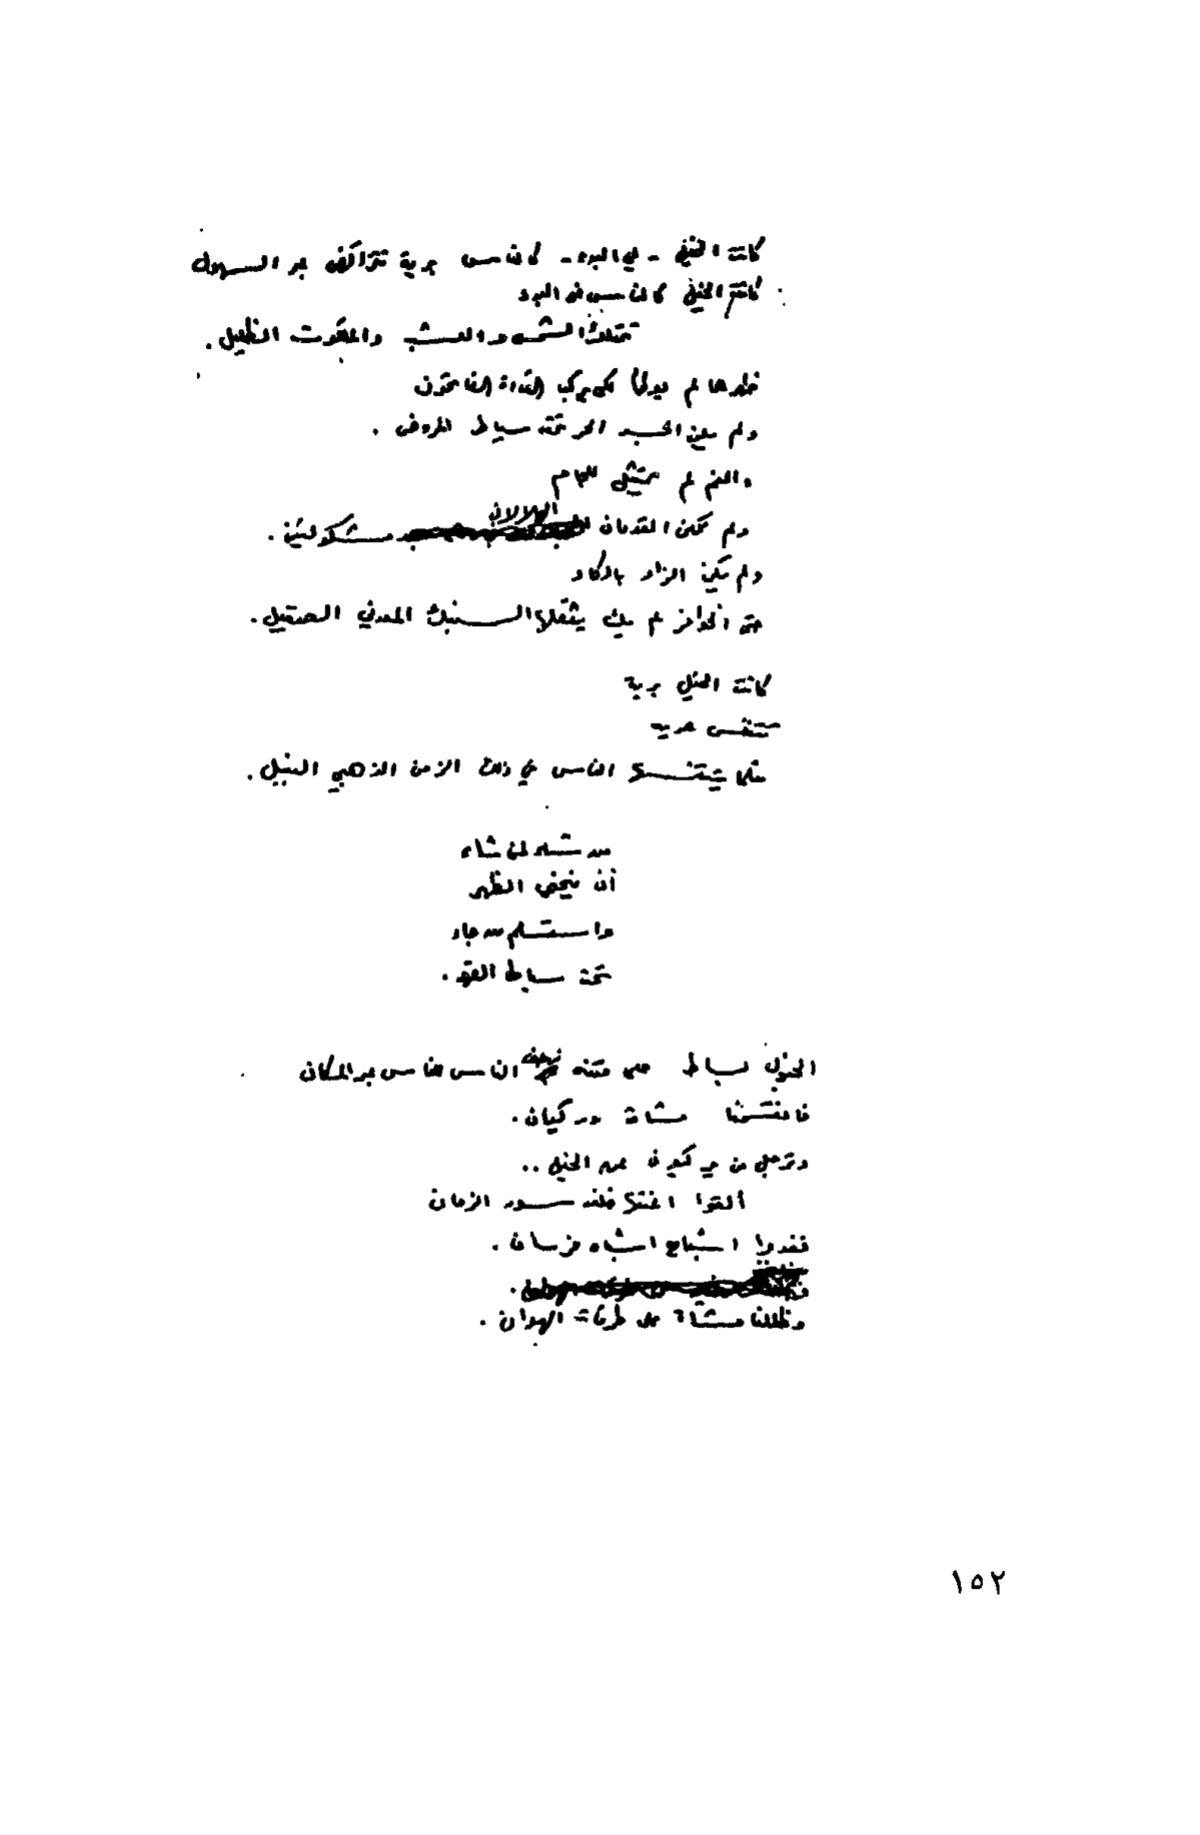 كانت الخيل - في البدء - كالناس برية تتراكض عبر السهول
كانت الخيل كالناس في البدء
تمتلك الشمس والعشب والملكوت الظليل .
ظهرها لم يوطأ لكي يركب القادة الفاتحون
ولم يلن الجسد الحر تحت سياط المروض .
والفم لم يمتثل للجام
ولم تكن القدمان
الهلالان مشكولتين .
ولم يكن الزاد بالكاد
حتى الحوافر لم يك يثقلها السنبك المعدني الصقيل .
كانت الخيل برية
تتنفس حرية
مثلما يتنفسها الناس في ذلك الزمن الذهبي النبيل .
من شاء
أن ينحني الظهر
واستسلم من جاء
تحت سياط القهر .
الخيول بساط على متنه الناس للناس عبر المكان
مشاة وركبان .
الخيل ..
ألقوا سور الزمان
فغدوا أشباح أشباه فرسان .
وظللنا مشاة على طرقات الهوان .
١٥٢